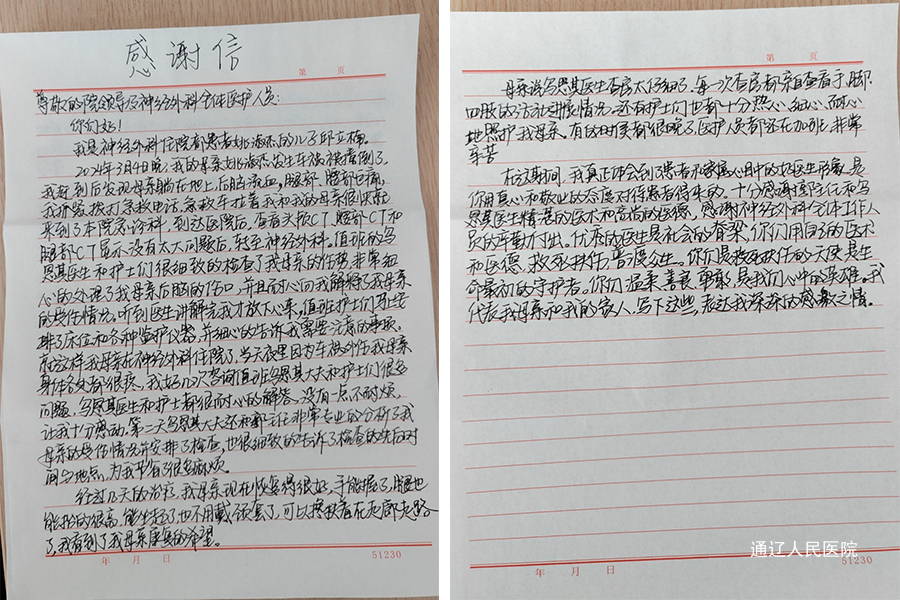 感谢信
第 页
尊敬的院领导及神经外科全体医护人员:
你们好!
我是神经外科住院部患者姚淑杰的儿子邱立楠。
2024年3月4日晚,我的母亲姚淑杰发生车祸被撞倒了。
我赶到后发现母亲躺在地上,后脑流血,腿部、腰部也痛,
我拆路拨打急救电话,急救车拉着我和我的母亲很快赶
来到了本院急诊科,到达医院后,查看头颅CT,腰部CT和
腿部CT显示没有太大问题后,转至神经外科。值班的乌
恩其医生和护士们很细致的检查了我母亲的伤势,非常细
心的处理了我母亲后脑的伤口,并且耐心的为我解释了我母亲
的受伤情况,听到医生讲解给我才放下心来,值班护士们马上安
排了床位和各种监护仪器,并细心的告诉我需要注意的事项。
就这样我母亲在神经外科住院了,当天夜里因为车祸外伤我母亲
身体各处都很疼,我好几次咨询值班乌恩其大夫和护士们很多
问题,乌恩其医生和护士都很耐心的解答,没有一点不耐烦,
让我十分感动。第二天乌恩其大夫还和郭主任非常专业的分析了我
母亲的受伤情况并安排了检查,也很细致的告诉了检查的先后时
间与地点,为我节省了很多麻烦。
经过几天的治疗,我母亲现在恢复得很好,手能握了,腿也
能抬的很高,能坐起了,也不用戴颈套了,可以搀扶着在走廊走路
了,我看到了我母亲康复的希望。
年 月 日
51230
第 页
母亲说乌恩其医生查房太仔细了,每一次查房都亲自查看手脚
四肢的活动进展情况。还有护士们也都十分热心、细心、耐心
地照护我母亲,有的时候都很晚了,医护人员都还在加班,非常
辛苦
在这期间,我真正体会到患者和家属心目中的好医生形象,是
你们用真心和敬业的态度对待患者得来的。十分感谢郭主任和乌
恩其医生精湛的医术和高尚的医德,感谢神经外科全体工作人
员的辛勤付出。优秀的医生是社会的脊梁,你们用自己的医术
和医德,救死扶伤,普渡众生。你们是救死扶伤的天使,是生
命最初的守护者。你们温柔、善良、聪颖,是我们心中的英雄。我
代表我母亲和我的家人,写下这些,表达我深深的感激之情。
通辽人民医院
年 月 日
51230